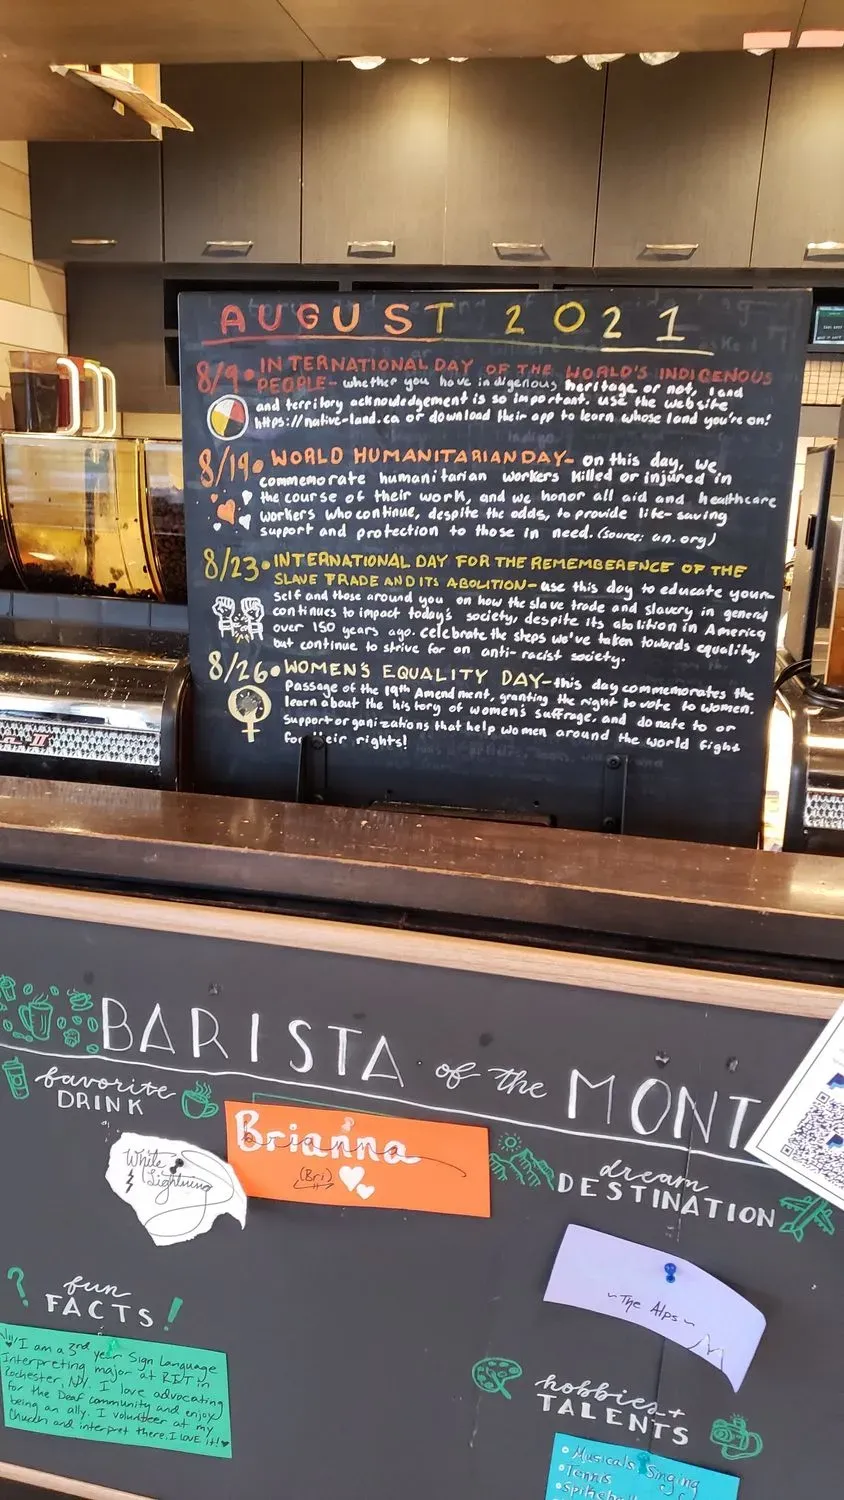 AUGUST 2021
8/9 • INTERNATIONAL DAY OF THE WORLD'S INDIGENOUS
PEOPLE - whether you have indigenous heritage or not, land
and territory acknowledgement is so important. use the website
https://native-land.ca or download their app to learn whose land you're on!
8/19 • WORLD HUMANITARIAN DAY - on this day, we
commemorate humanitarian workers killed or injured in
the course of their work, and we honor all aid and healthcare
workers who continue, despite the odds, to provide life-saving
support and protection to those in need. (source: un.org)
8/23 • INTERNATIONAL DAY FOR THE REMEMBERENCE OF THE
SLAVE TRADE AND ITS ABOLITION - use this day to educate your-
self and those around you on how the slave trade and slavery in general
continues to impact today's society, despite its abolition in America
over 150 years ago. celebrate the steps we've taken towards equality,
but continue to strive for an anti-racist society.
8/26 • WOMEN'S EQUALITY DAY - this day commemorates the
passage of the 19th Amendment, granting the right to vote to women.
learn about the history of women's suffrage, and donate to or
support organizations that help women around the world fight
for their rights!
BARISTA of the MONT
favorite
DRINK
White
Lightning
Brianna
(Bri)
dream
DESTINATION
~The Alps~
fun
FACTS!
I am a 3rd year Sign Language
Interpreting major at RIT in
Rochester, NY. I love advocating
for the Deaf community and enjoy
being an ally. I volunteer at my
Church and interpret there. I LOVE it!
hobbies +
TALENTS
• Musicals, Singing
• Tennis